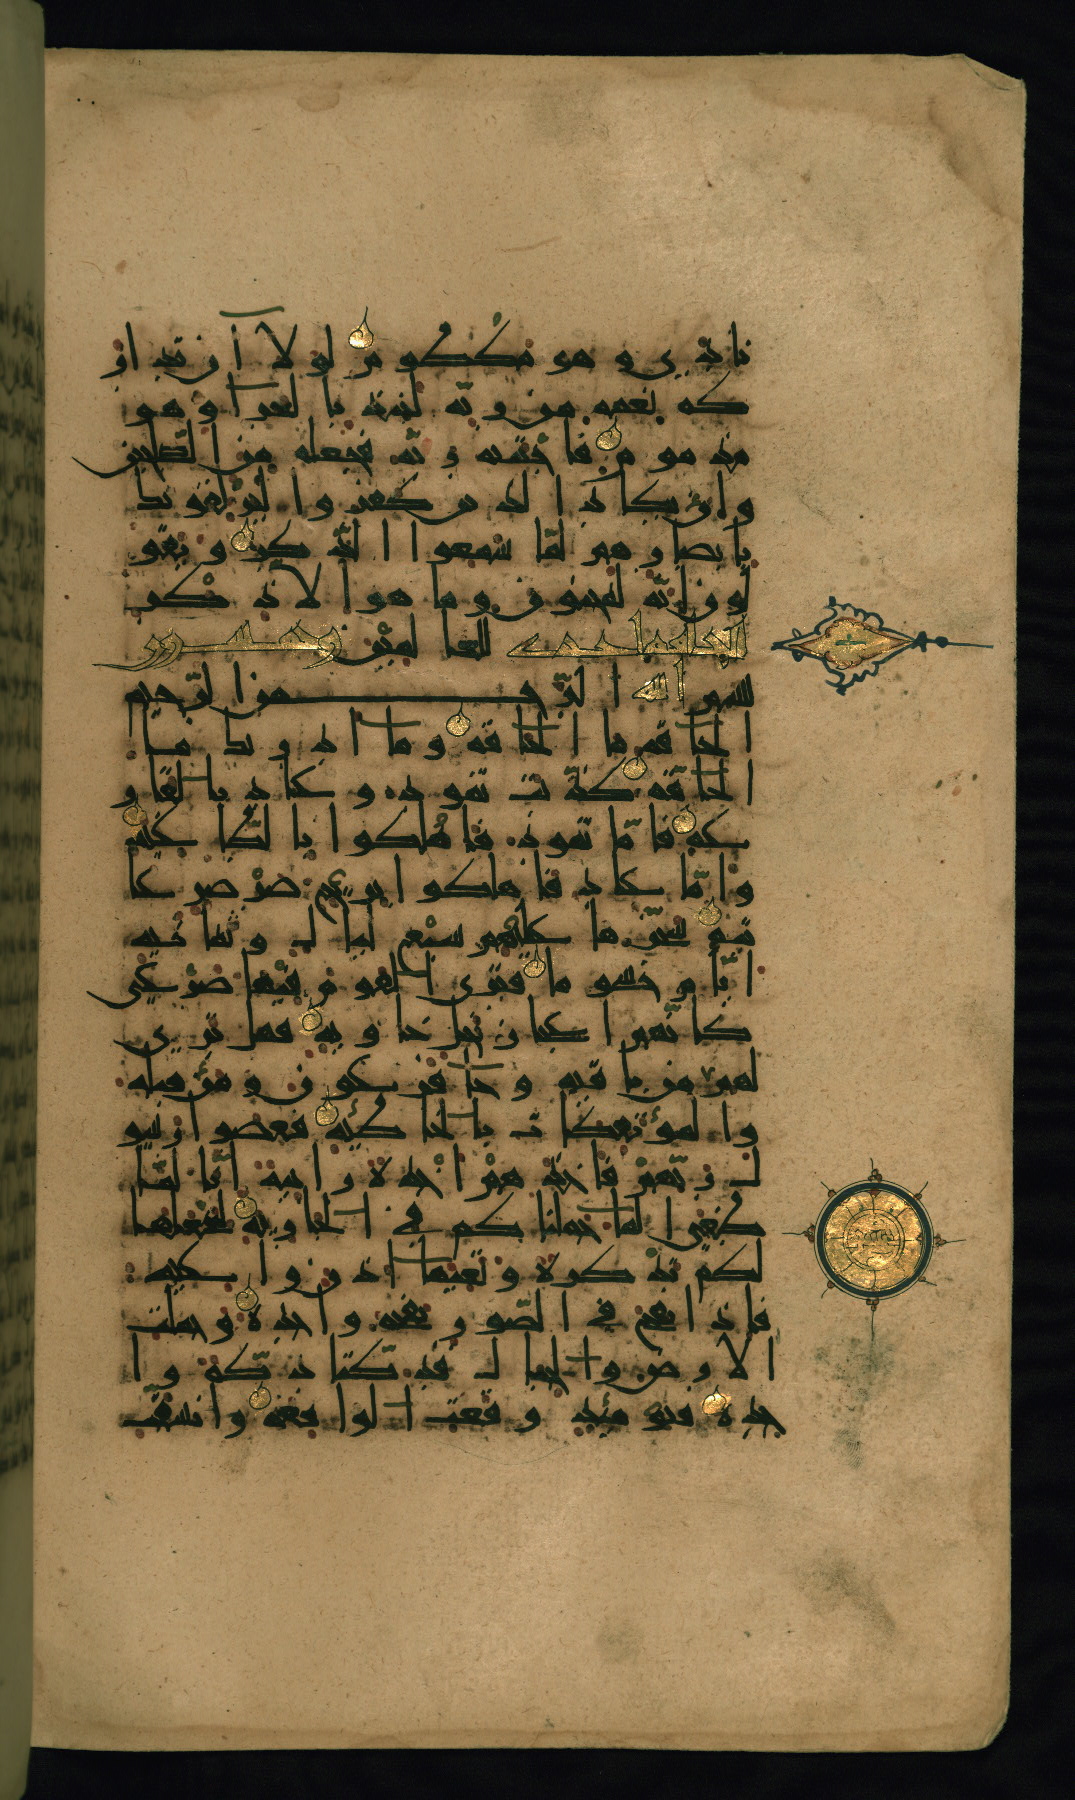 نادى وهو مكظوم لولا أن تدار
كه نعمة من ربه لنبذ بالعرا وهو
مذموم فاجتبه ربه فجعله من الصلحين
وان يكاد الذين كفروا ليزلقونك
بابصارهم لما سمعوا الذكر ويقو
لون انه لمجنون وما هو الا ذكر
الحاقة احدى للعالمين وخمسون
بسم الله الرحمن الرحيم
الحاقة ما الحاقة وما ادريك ما
الحاقة كذبت ثمود وعاد بالقار
عة فاما ثمود فاهلكوا بالطاغية
واما عاد فاهلكوا بريح صرصر عا
تية سخرها عليهم سبع ليال وثمانية
ايام حسوما فترى القوم فيها صرعى
كانهم اعجاز نخل خاوية فهل ترى
لهم من باقية وجا فرعون ومن قبله
والمؤتفكات بالخاطئة فعصوا رسو
ل ربهم فاخذهم اخذة رابية انا لما
طغى الما حملناكم في الجارية لنجعلها
لكم تذكرة وتعيها اذن واعية
فاذا نفخ في الصور نفخة واحدة وحملت
الارض والجبال فدكتا دكة وا
حدة فيومئذ وقعت الواقعة وانشقت